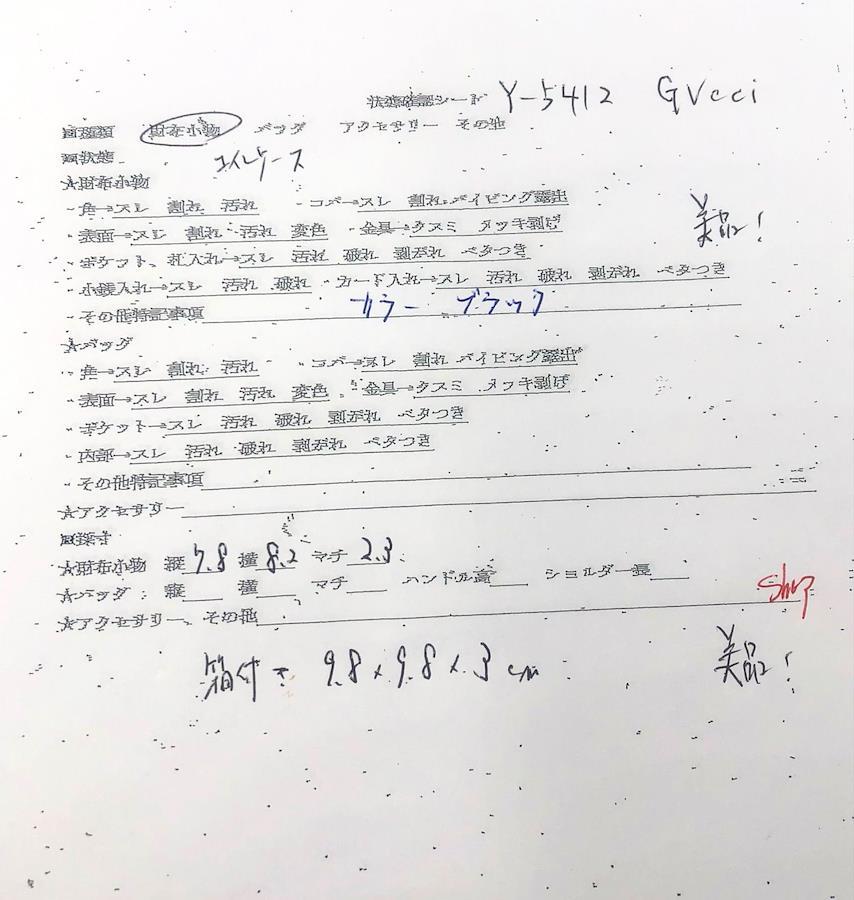 状態確認シート Y-5412 GVcci
■種類 財布小物 バッグ アクセサリー その他
■状態 コインケース
★財布小物
・角→スレ 割れ 汚れ ・コバ→スレ 割れ パイピング露出
・表面→スレ 割れ 汚れ 変色 ・金具→クスミ メッキ剥げ
美品!
・ポケット、札入れ→スレ 汚れ 破れ 剥がれ ベタつき
・小銭入れ→スレ 汚れ 破れ ・カード入れ→スレ 汚れ 破れ 剥がれ ベタつき
・その他特記事項 カラー ブラック
★バッグ
・角→スレ 割れ 汚れ ・コバ→スレ 割れ パイピング露出
・表面→スレ 割れ 汚れ 変色 ・金具→クスミ メッキ剥げ
・ポケット→スレ 汚れ 破れ 剥がれ ベタつき
・内部→スレ 汚れ 破れ 剥がれ ベタつき
・その他特記事項
★アクセサリー
■採寸
★財布小物 縦 7.8 横 8.2 マチ 2.3
★バッグ 縦 横 マチ ハンドル高 ショルダー長
★アクセサリー、その他
箱付き 9.8×9.8×3cm
美品!